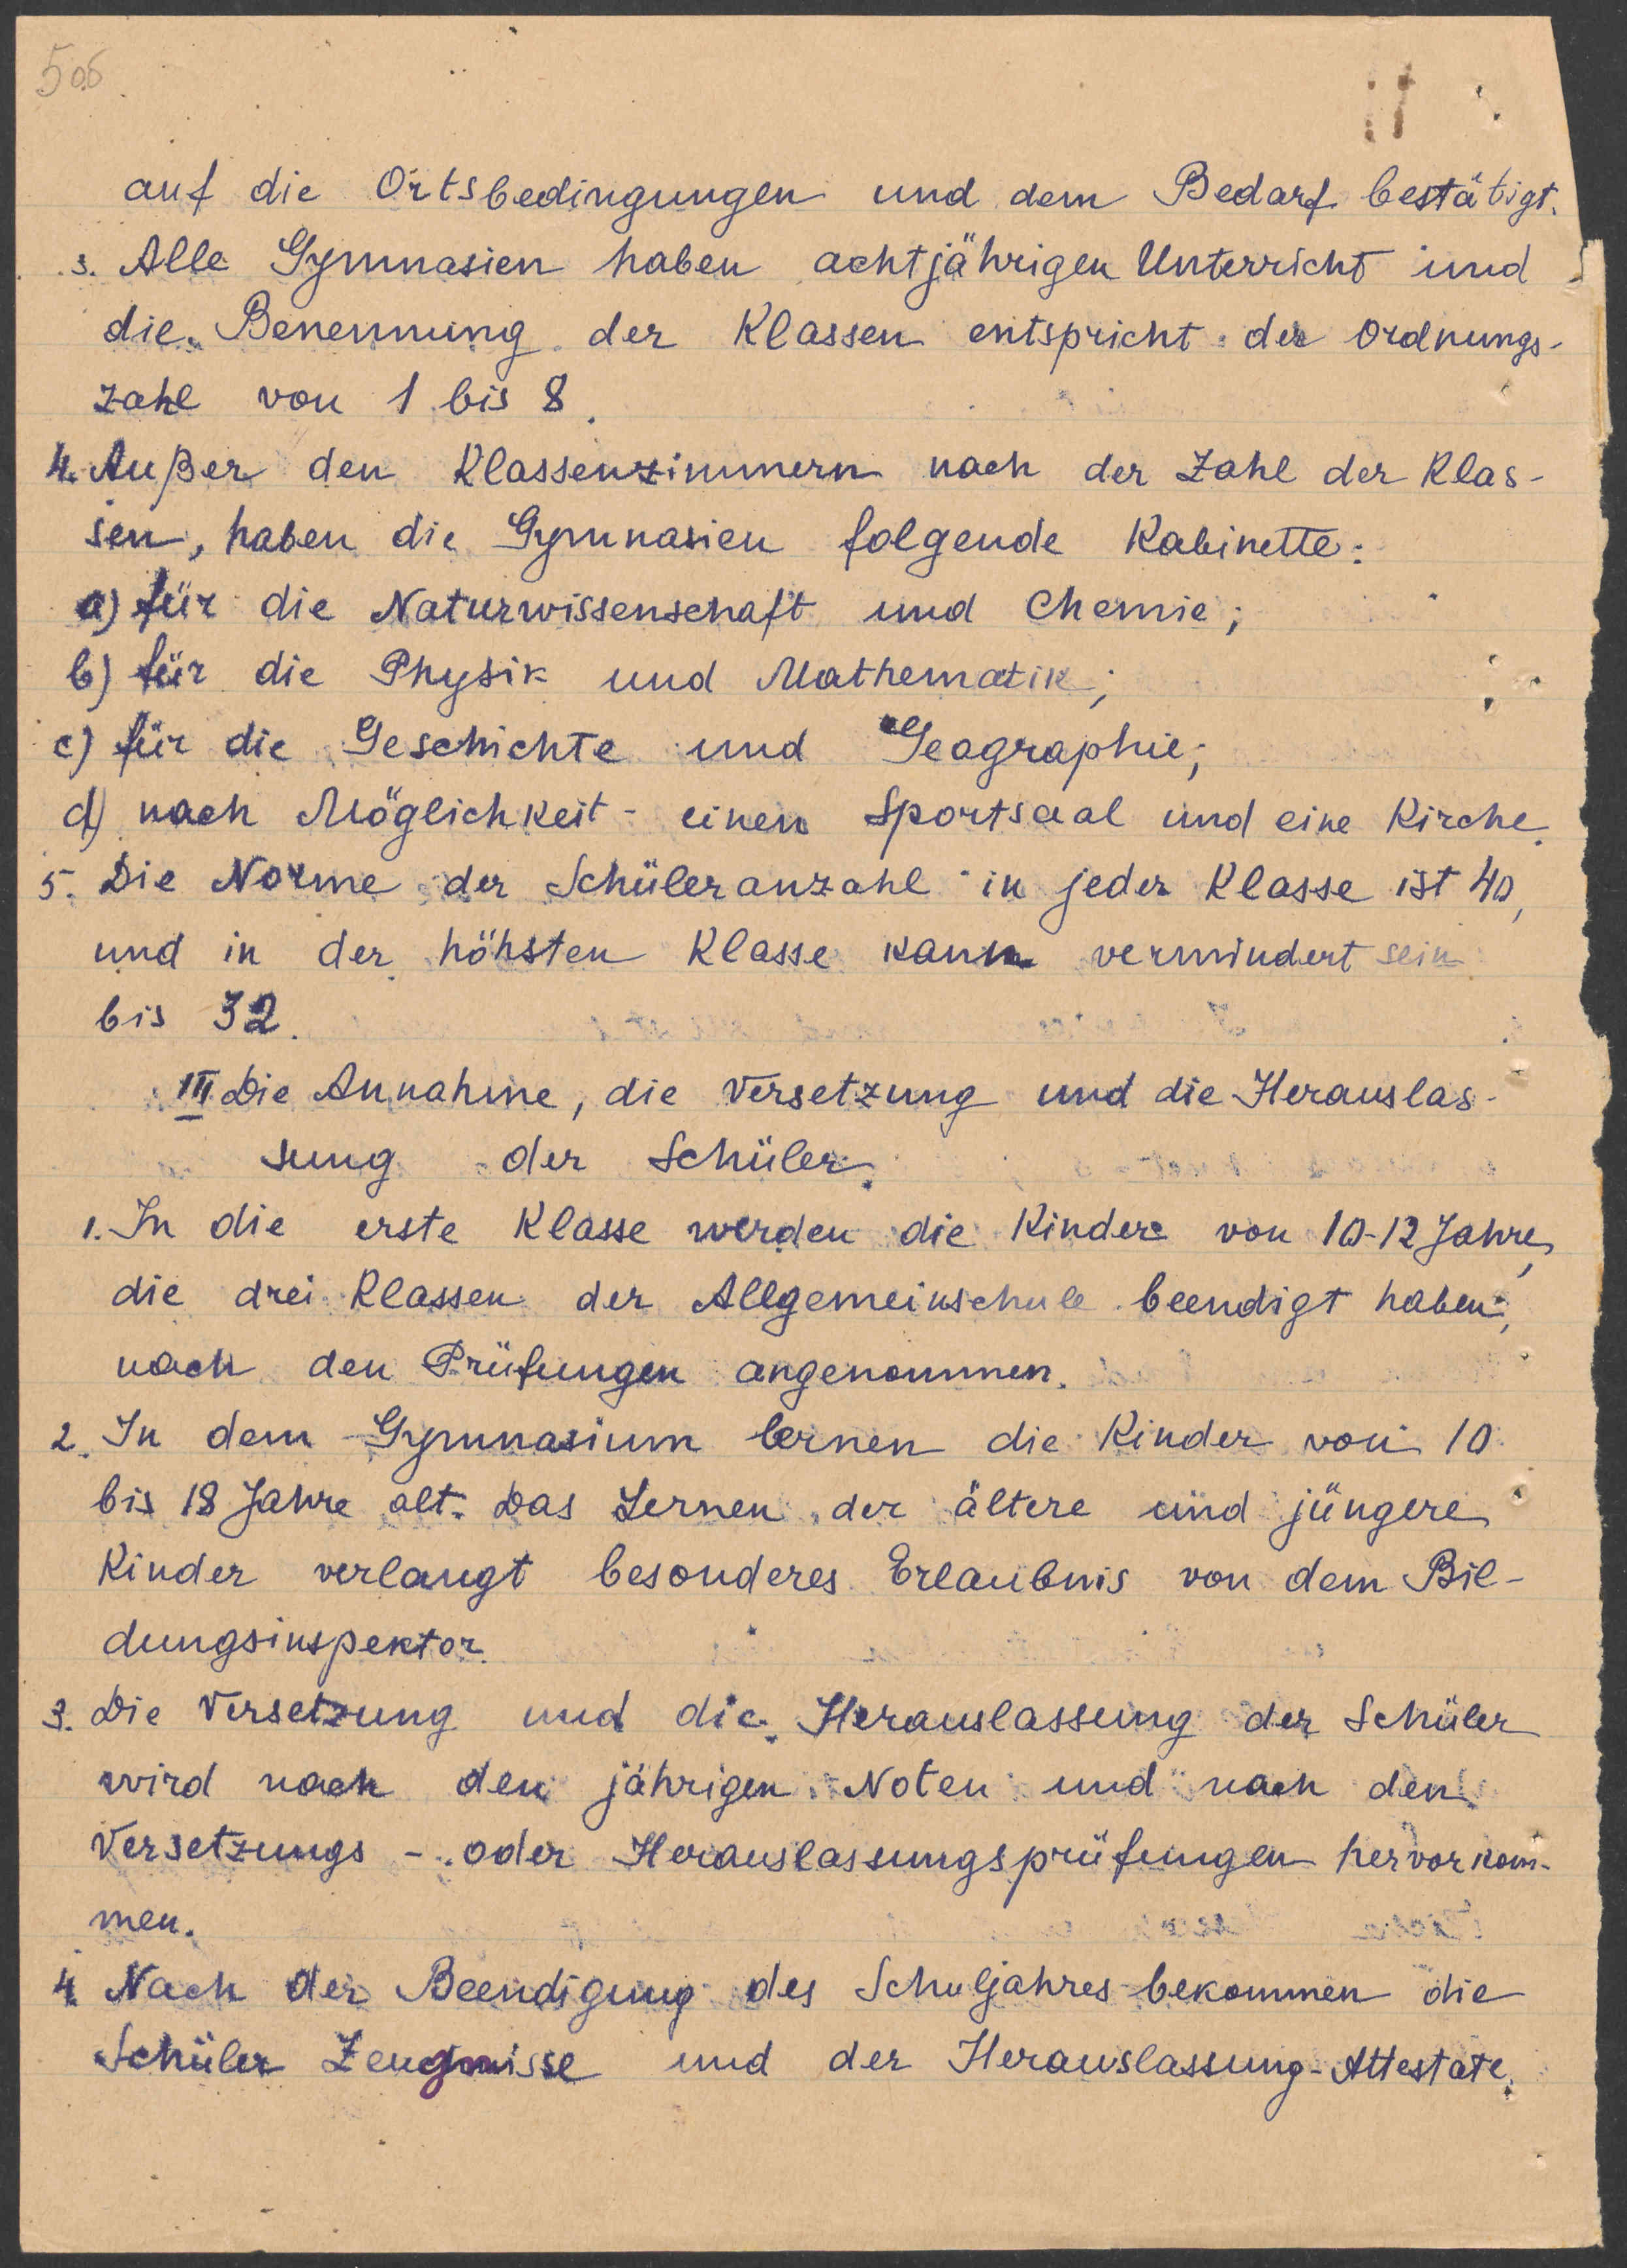 5об
auf die Ortsbedingungen und dem Bedarf bestätigt.
3. Alle Gymnasien haben achtjährigen Unterricht und
die Benennung der Klassen entspricht der Ordnungs-
zahl von 1 bis 8.
4. Außer den Klassenzimmern nach der Zahl der Klas-
sen, haben die Gymnasien folgende Kabinette:
a) für die Naturwissenschaft und Chemie;
b) für die Physik und Mathematik;
c) für die Geschichte und Geographie;
d) nach Möglichkeit - einen Sportsaal und eine Kirche.
5. Die Norme der Schüleranzahl in jeder Klasse ist 40,
und in der höhsten Klasse kann vermindert sein
bis 32.
III Die Annahme, die Versetzung und die Herauslas-
sung der Schüler.
1. In die erste Klasse werden die Kinder von 10-12 Jahre,
die drei Klassen der Allgemeinschule beendigt haben,
nach den Prüfungen angenommen.
2. In dem Gymnasium lernen die Kinder von 10
bis 18 Jahre alt. Das Lernen der ältere und jüngere
Kinder verlangt besonderes Erlaubnis von dem Bil-
dungsinspektor.
3. Die Versetzung und die Herauslassung der Schüler
wird nach den jährigen Noten und nach den
Versetzungs - oder Herauslassungsprüfungen hervorkom-
men.
4. Nach der Beendigung des Schuljahres bekommen die
Schüler Zeugnisse und der Herauslassung-Attestate.